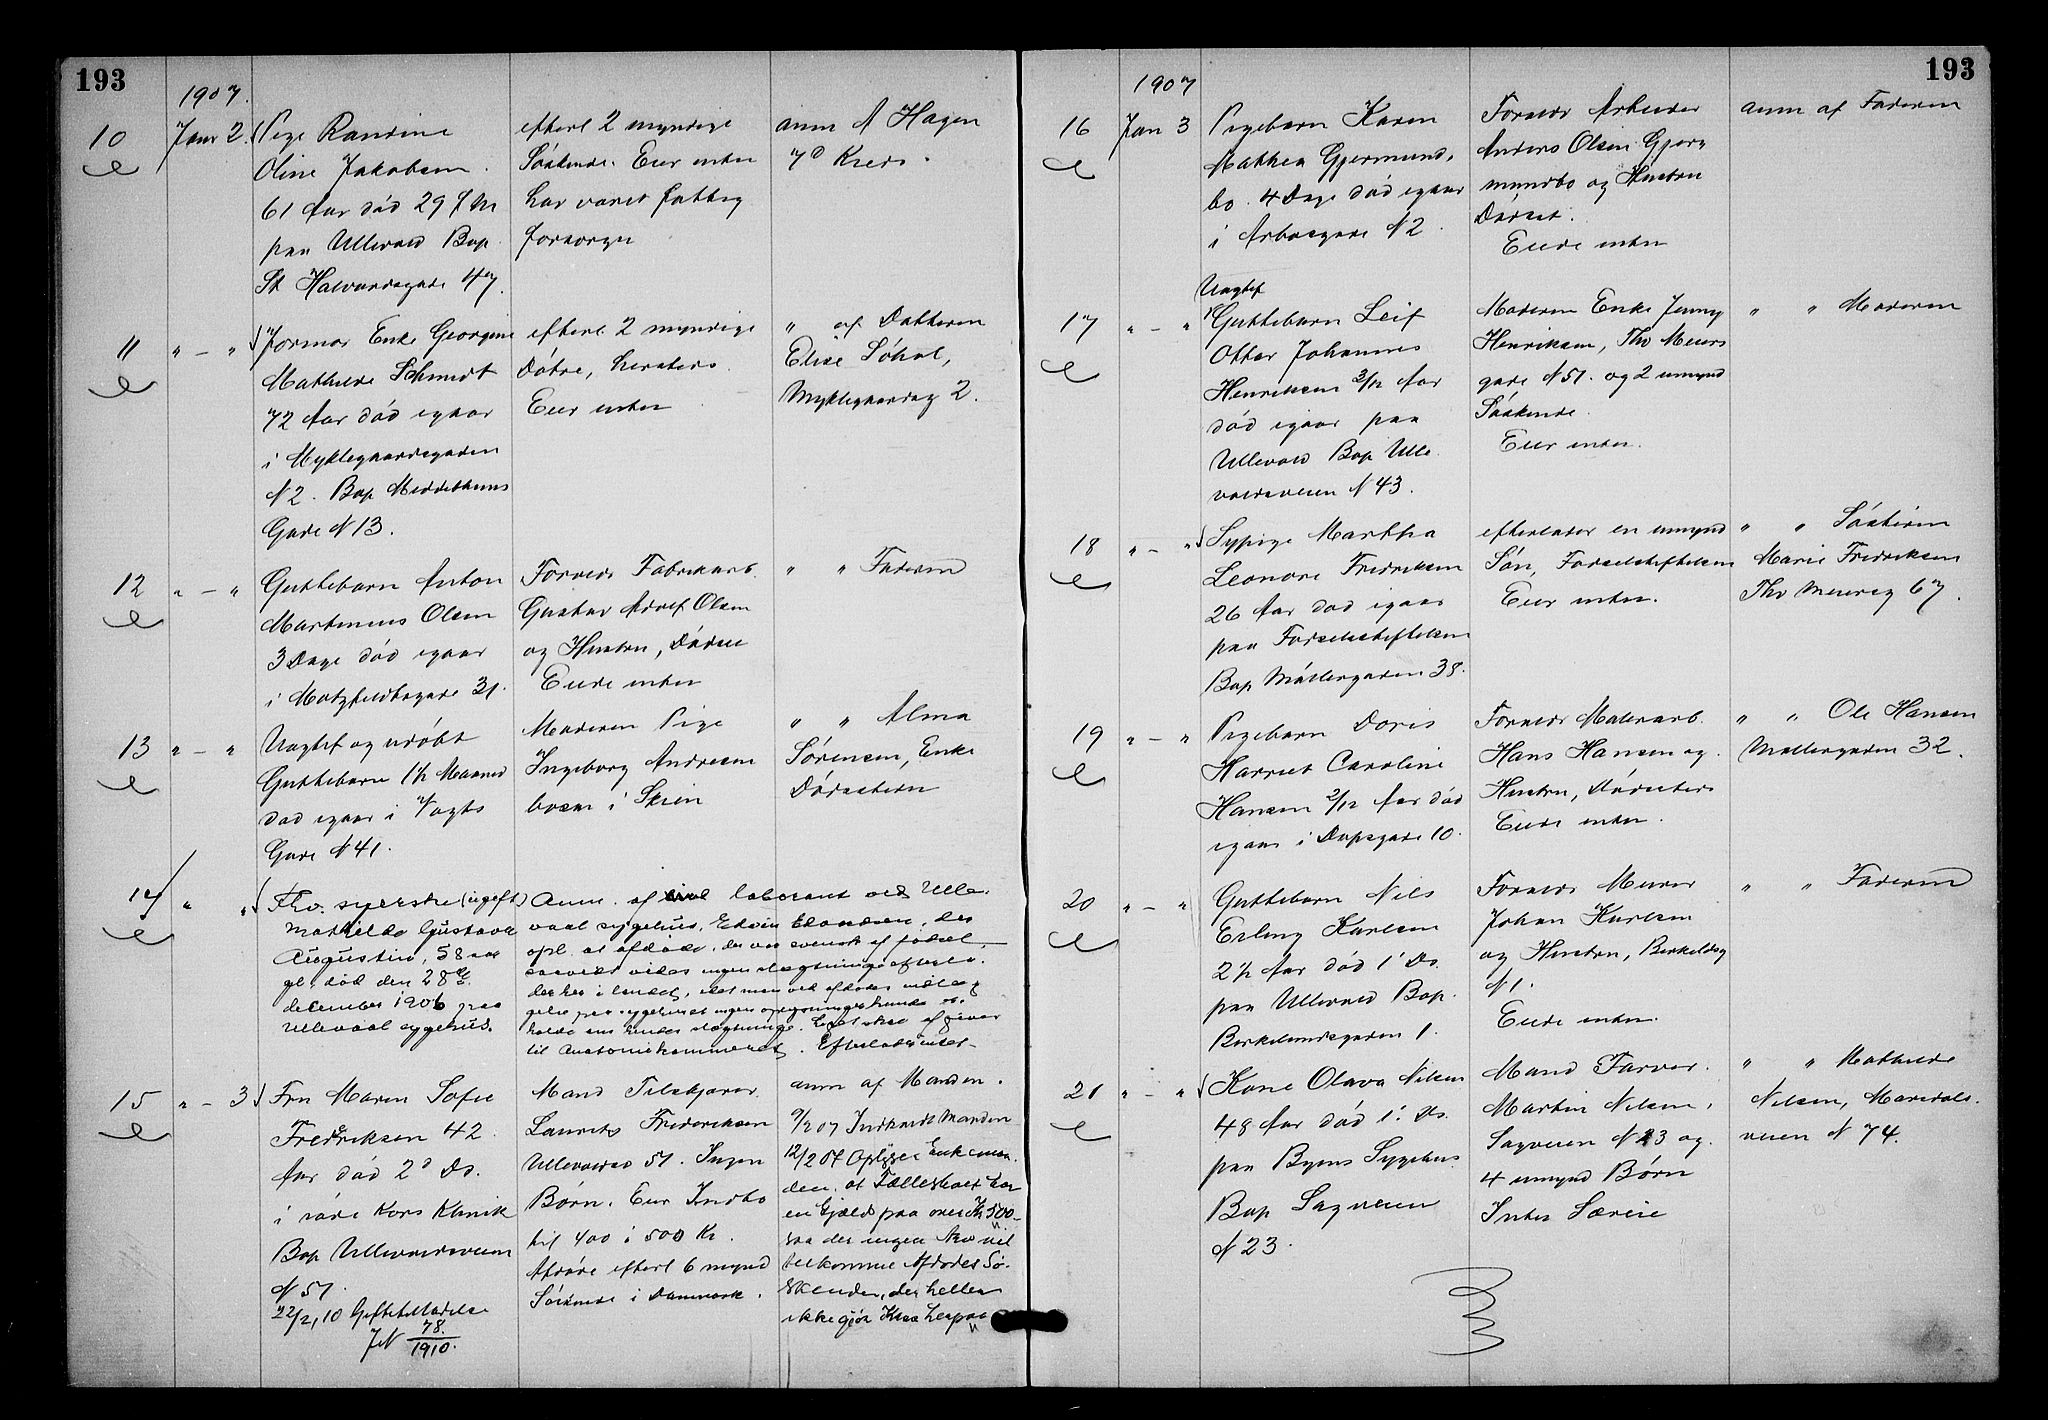 193
1907.
10
Janr 2.
Pige Randine
Oline Jakobsen.
61 Aar død 29 f M
paa Ullevaal Bop.
St Halvardsgade 47.
efterl 2 myndige
Søskende. Eier inten
har været fattig
forsørget
anm A Hagen
7d Kreds.
11
" - "
Jormor Enke Georgine
Mathilde Schmidt
72 Aar død igaar
i Myklegaardsgaden
N 2. Bop Meddelthuns
Gade N 13.
efterl. 2 myndige
Døtre,
Eier inten
" af Datteren
Elise Søhol,
Myklegaardsg 2.
12
" - "
Guttebarn Anton
Martinius Olsen
3 Dage død igaar
i Motzfeldtsgade 31.
Forældr Fabrikarb.
Gustav Adolf Olsen
og Hustru, Dødsat
Eiede inten
" " Faderen
13
" - "
Uægtef og udøbt
Guttebarn 1½ Maaned
død igaar i Vogts
Gade N 41.
Moderen Pige
Ingeborg Andresen
boen i Skien
" " Alma
Sørensen, Enke
Dødsatten
14
" "
Fhv. syerske (ugift)
Mathilde Gustava
Augustin, 58 aar
gl. død den 28de
december 1906 paa
Ullevaal sygehus.
Anm. af laborant ved Ulle-
vaal sygehus, Edvin Elandsen, der
opl. at afdøde, der var svensk af fødsel,
saavidt vides ingen slægtninge efterla-
der her i landet, idet man ved afdødes indlæg-
gelse paa sygehuset ingen oplysninger kunde er-
holde om hendes slægtninge. Liget skal afgives
til Anatomikammeret. Efterlod intet.
15
" - 3
Fru Maren Sofie
Fredriksen 42
Aar død 2d Ds.
i røde Kors Klinik
Bop Ullevoldsveien
N 57.
22/2, 10 Gifteteltadelse
JN 78./1910.
Mand Tilskjærer
Laurits Frederiksen
Ullevoldsv 57. Ingen
Børn. Eier Indbo
til 400 i 500 Kr.
Afdøde efterl 6 mynd
Søskende i Danmark.
anm af Manden.
9/2 07 Indkaldt Manden
12/2 07 Oplyser Enkeman-
den, at Fælleskabet har
en Gjæld paa over Kr 500-
saa der ingen Arv vil
tilkomme Afdødes Sø-
skende, der heller
ikke gjør Krav herpaa"
193
1907
16
Jan 3
Pigebarn Karen
Mathea Gjermund-
bo. 4 Dage død igaar
i Arbosgade N 2.
Forældr Arbeider
Anders Olsen Gjer-
mundbo og Hustru
Dødsat.
Eiede inten
anm af Faderen
17
" - "
Uægtef
Guttebarn Leif
Ottar Johannes
Henriksen 3/12 Aar
død igaar paa
Ullevold Bop Ulle-
voldsveien N 43.
Moderen Enke Jenny
Henriksen, Thv Meiers
gade N 51. og 2 umynd
Søskende.
Eier inten.
" " Moderen
18
" - "
Sypige Martha
Leonore Fredriksen
26 Aar død igaar
paa Fødselsstiftelsen
Bop Møllergaden 38.
efterlader en umynd
Søn, Fødselsstiftelsen
Eier inten.
" " Søsteren
Marie Fredriksen
Thv Meiersg 67.
19
" - "
Pigebarn Doris
Harriet Caroline
Hansen 2/12 Aar død
igaar i Dopsgade 10.
Forældr Malerarb.
Hans Hansen og
Hustru, Dødsted
Eiede inten.
" " Ole Hansen
Møllergaden 32.
20
" - "
Guttebarn Nils
Erling Karlsen
2½ Aar død 1' Ds.
paa Ullevold Bop.
Birkelundsgaden 1.
Forældr Murer
Johan Karlsen
og Hustru, Birkeldsg
N 1.
Eiede inten.
" " Faderen
21
" - "
Kone Olava Nilsen
48 Aar død 1. Ds.
paa Byens Sygehus.
Bop Sagveien
N 23.
Mand Farver
Martin Nilsen,
Sagveien N 23 og
4 umynd Børn
Inten Særeie
" " Mathilde
Nilsen, Maridals-
veien N 74.